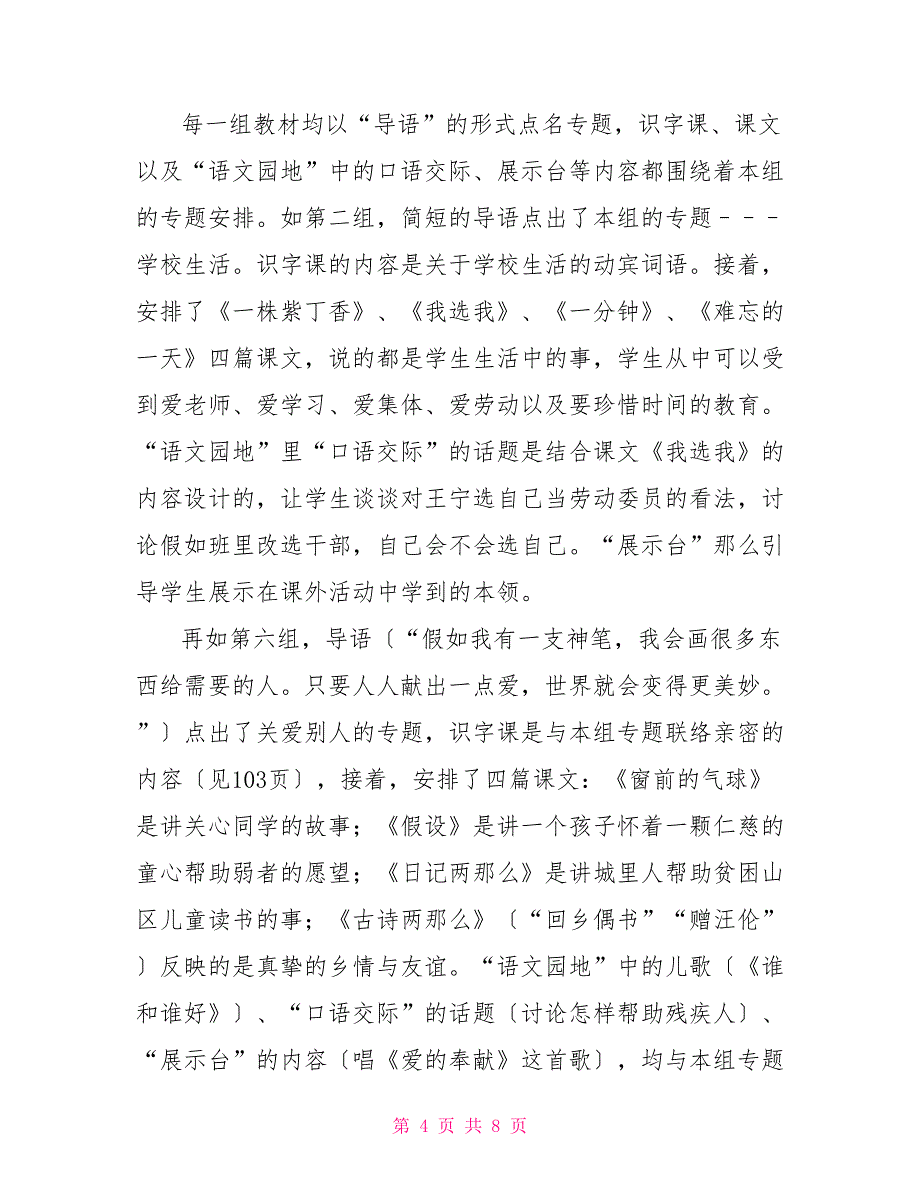 每一组教材均以“导语”的形式点名专题，识字课、课文
以及“语文园地”中的口语交际、展示台等内容都围绕着本组
的专题安排。如第二组，简短的导语点出了本组的专题---
学校生活。识字课的内容是关于学校生活的动宾词语。接着，
安排了《一株紫丁香》、《我选我》、《一分钟》、《难忘的
一天》四篇课文，说的都是学生生活中的事，学生从中可以受
到爱老师、爱学习、爱集体、爱劳动以及要珍惜时间的教育。
“语文园地”里“口语交际”的话题是结合课文《我选我》的
内容设计的，让学生谈谈对王宁选自己当劳动委员的看法，讨
论假如班里改选干部，自己会不会选自己。“展示台”那么引
导学生展示在课外活动中学到的本领。
再如第六组，导语〔“假如我有一支神笔，我会画很多东
西给需要的人。只要人人献出一点爱，世界就会变得更美妙。
”〕点出了关爱别人的专题，识字课是与本组专题联络亲密的
内容〔见103页〕，接着，安排了四篇课文：《窗前的气球》
是讲关心同学的故事；《假设》是讲一个孩子怀着一颗仁慈的
童心帮助弱者的愿望；《日记两那么》是讲城里人帮助贫困山
区儿童读书的事；《古诗两那么》〔“回乡偶书”“赠汪伦”
〕反映的是真挚的乡情与友谊。“语文园地”中的儿歌〔《谁
和谁好》〕、“口语交际”的话题〔讨论怎样帮助残疾人〕、
“展示台”的内容〔唱《爱的奉献》这首歌〕，均与本组专题
第 4 页 共 8 页